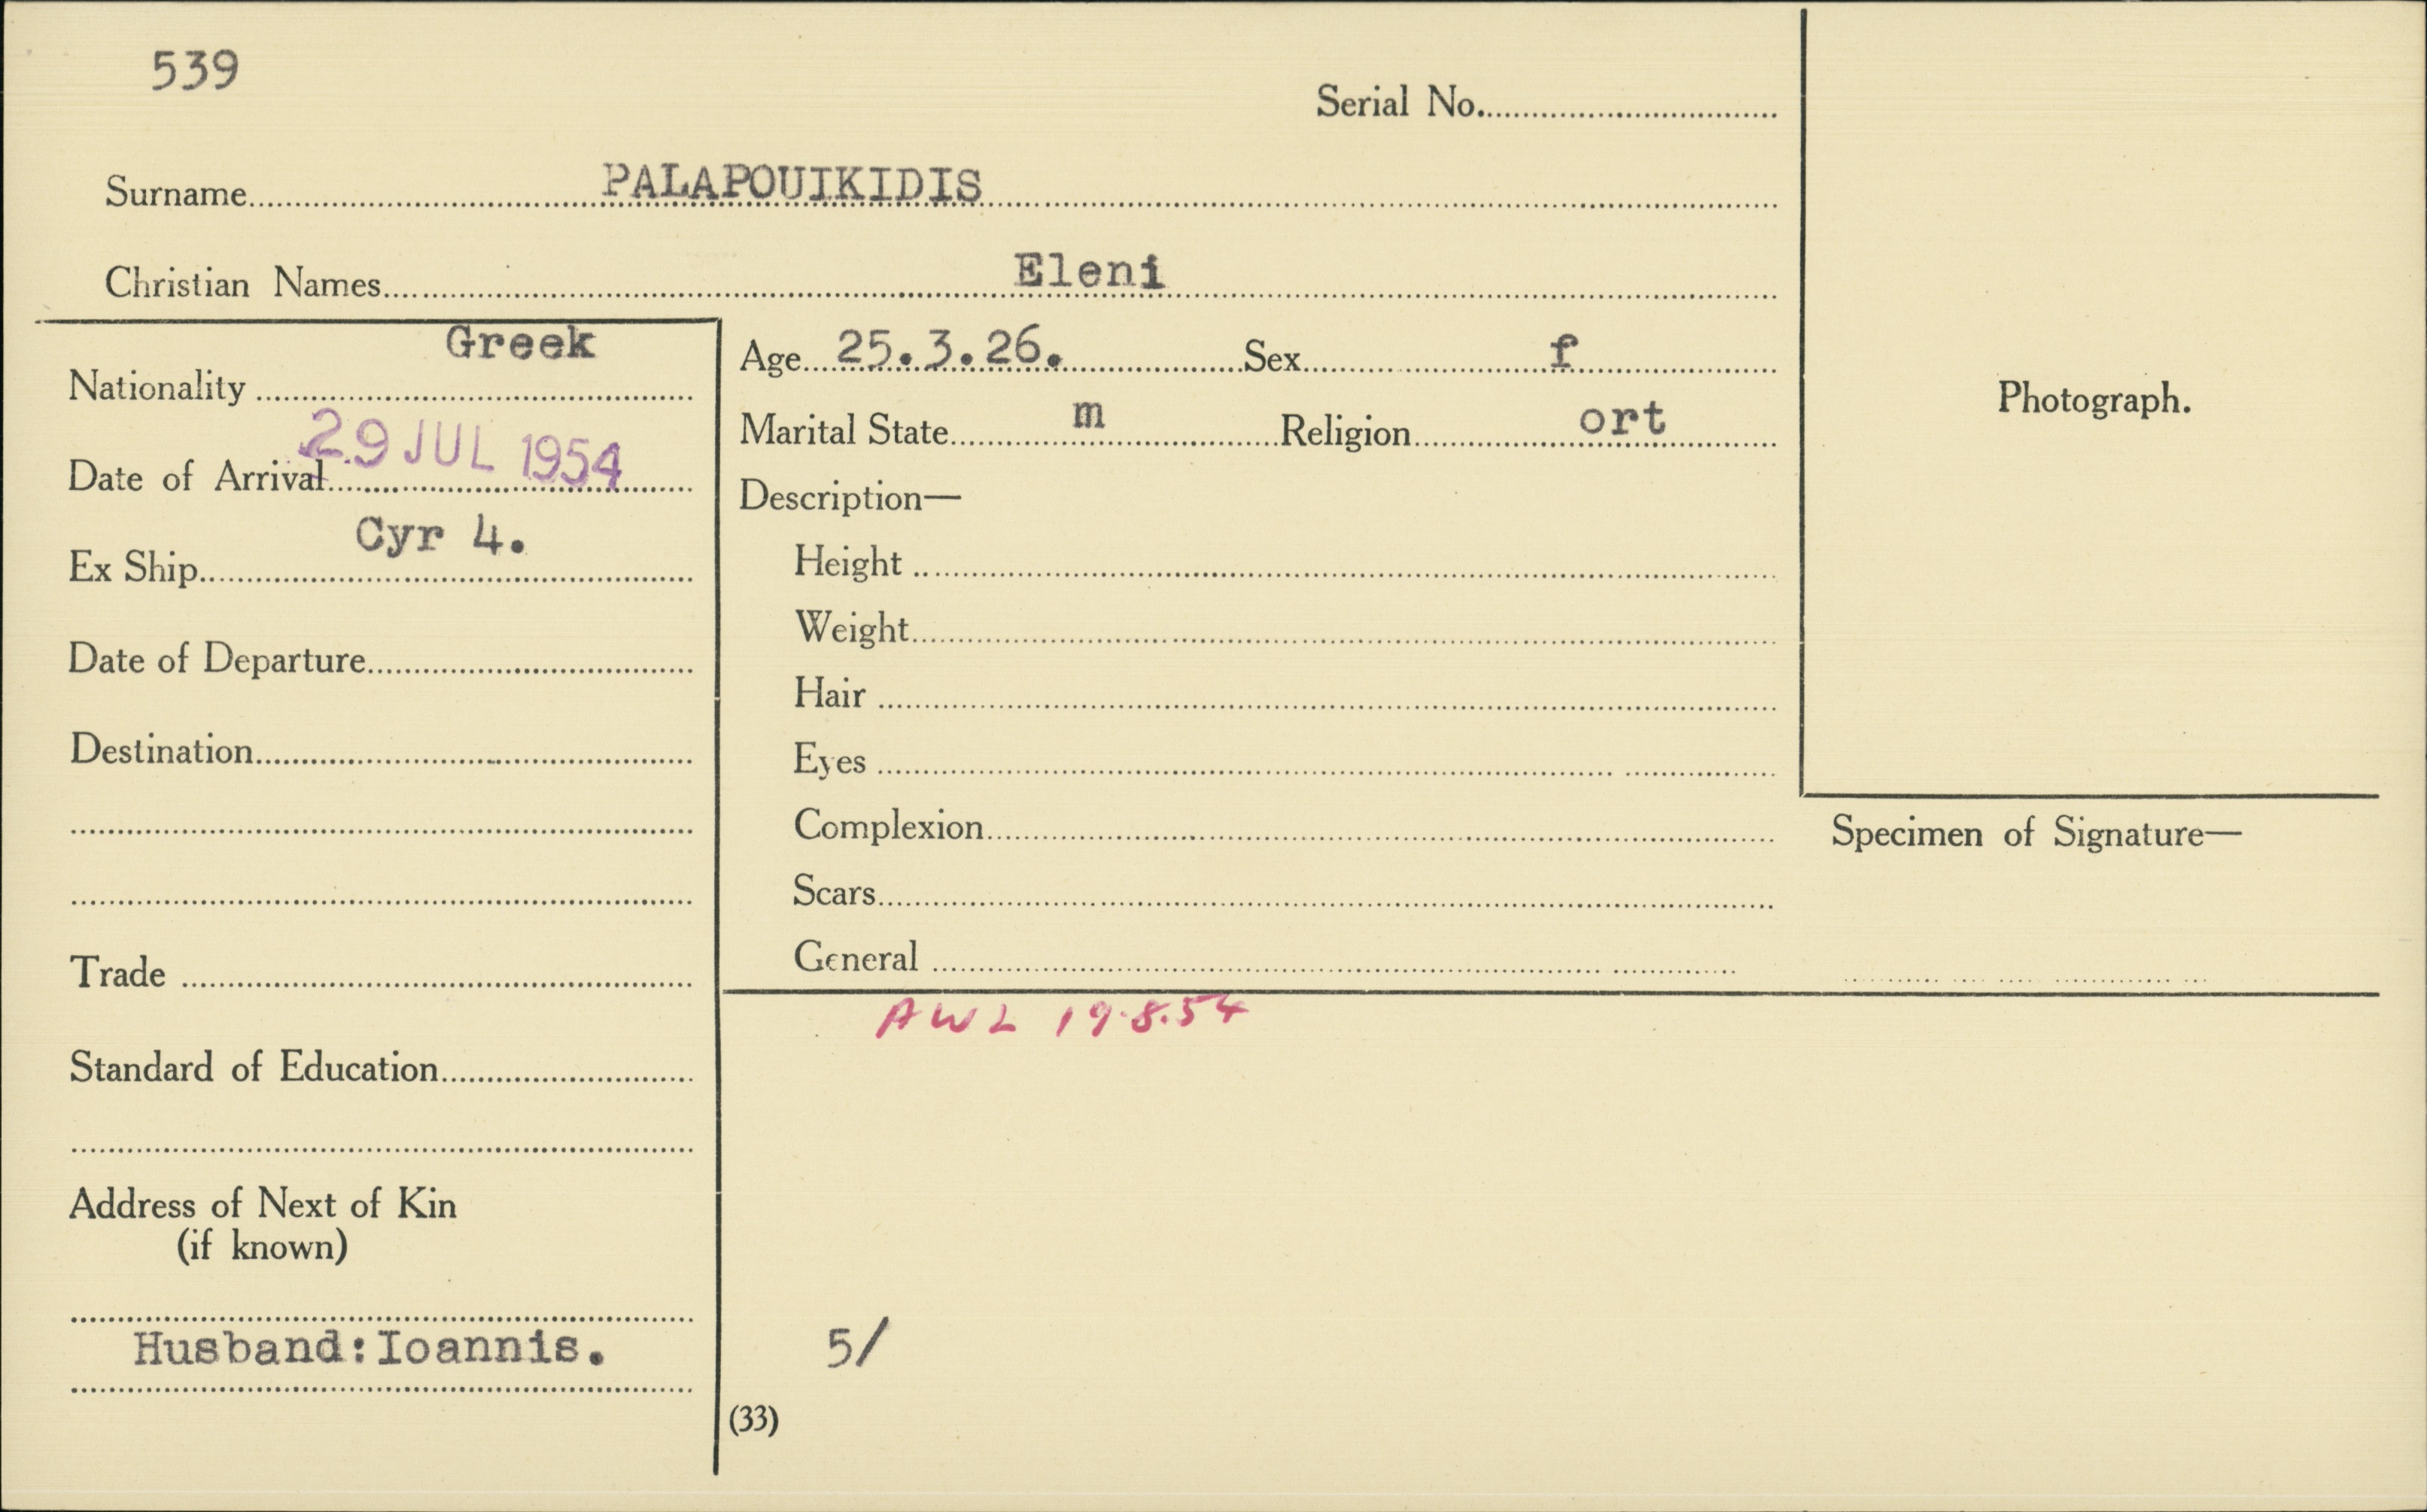 539
Serial No.
Surname PALAPOUIKIDIS
Christian Names Eleni
Nationality Greek
Date of Arrival 29 JUL 1954
Ex Ship Cyr 4.
Date of Departure
Destination
Trade
Standard of Education
Address of Next of Kin
(if known)
Husband:Ioannis.
Age 25.3.26. Sex f
Marital State m Religion ort
Description—
Height
Weight
Hair
Eyes
Complexion
Scars
General
Photograph.
Specimen of Signature—
AWL 19.8.54
5/
(33)